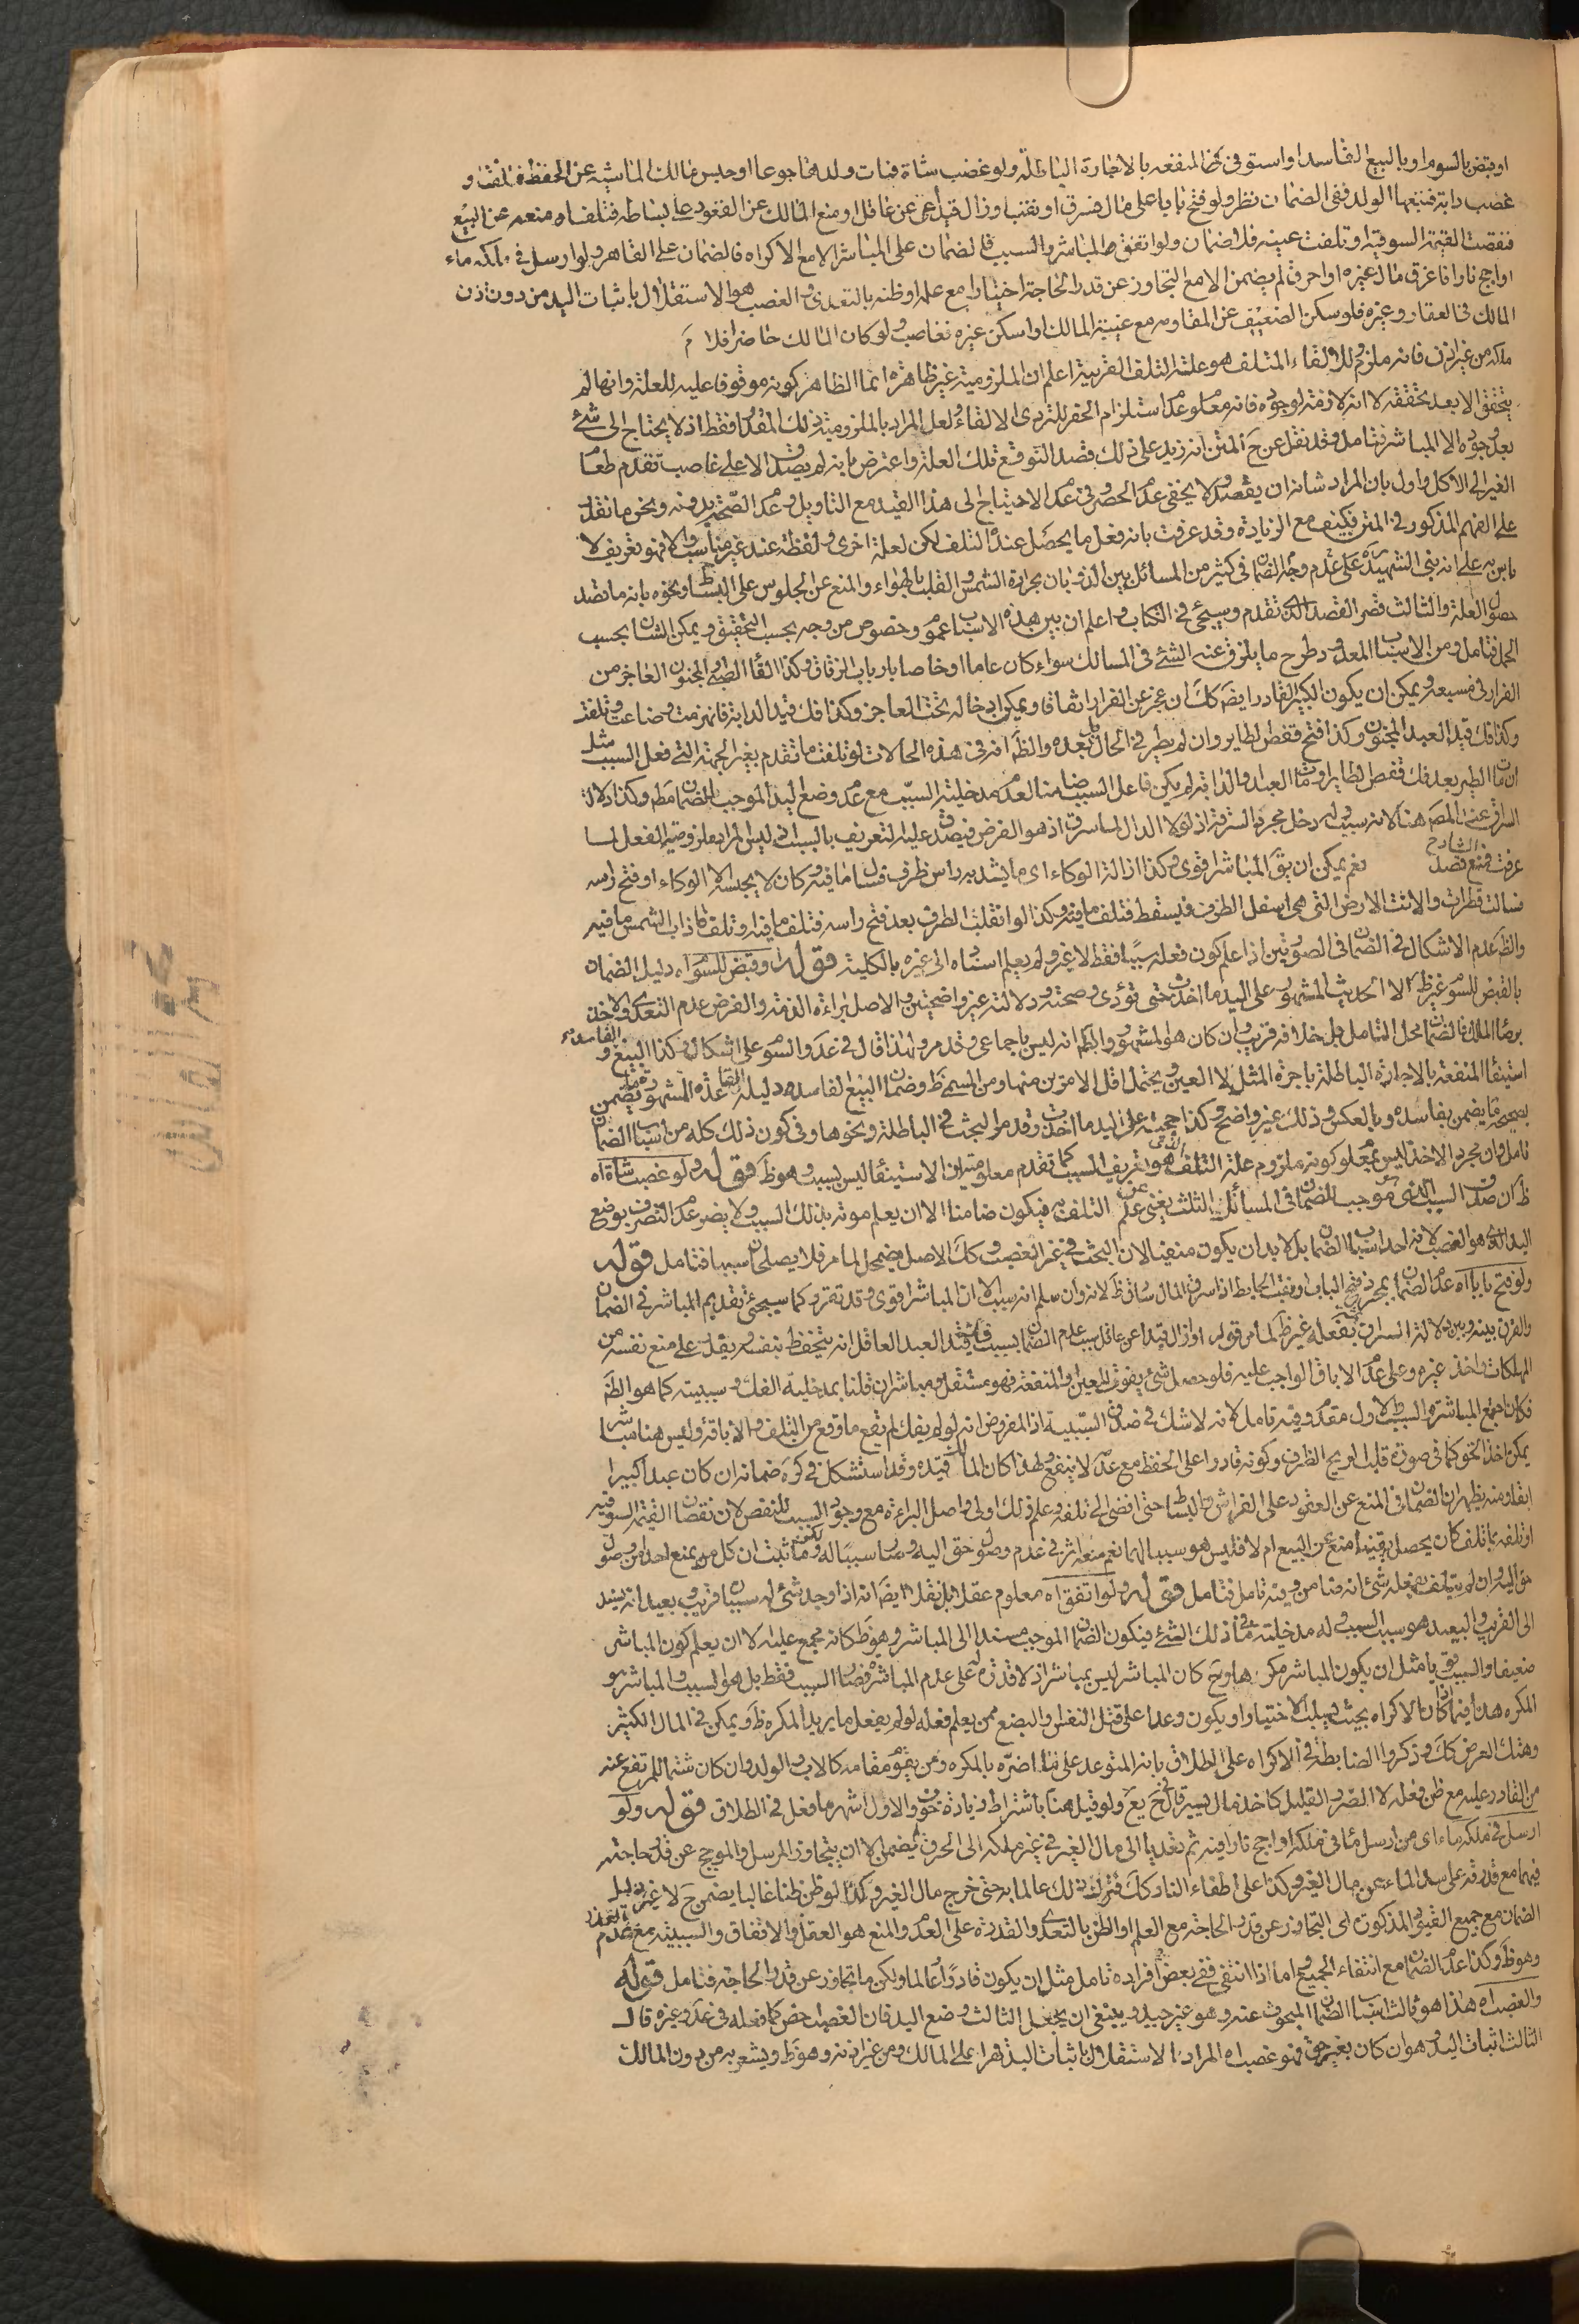 او قبض بالسوم او بالبيع الفاسد او استوفى المنفعة بالاجارة الباطلة ولو غصب شاة فمات ولدها جوعا او حبس مالك الماشية عن الحفظ فتلفت او
غصب دابة فتبعها الولد ففي الضمان نظر ولو فتح بابا على مال فسرق او نقب او ازال قيدا عن عاقل او منع المالك عن القعود على بساطه فتلف او منعه عن البيع
فنقصت القيمة السوقية او تلفت عينه فلا ضمان ولو اتفق المباشر والسبب فالضمان على المباشر الا مع الاكراه فالضمان على القاهر ولو ارسل في ملكه ماء
او اجج نارا فاغرق مال غيره او احرق لم يضمن الا مع التجاوز عن قدر الحاجة اختيارا مع علمه او ظنه بالتعدي والغصب هو الاستقلال باثبات اليد من دون اذن
المالك في العقار وغيره فلو سكن الضعيف عن المقاومة مع غيبة المالك او اسكن غيره فغاصب ولو كان المالك حاضرا فلا
ملكه من غير اذن فانه ملزوم لالقاء المتلف هو علة التلف القريبة اعلم ان الملزومية غير ظاهرة انما الظاهر كونه موقوفا عليه للعلة وانها لم
يتحقق الا بعد تحققه لا انه لازمة لوجوده فانه معلوم عدم استلزام الحفر للتردى الالقاء ولعل المراد بالملزومية ذلك المقدار فقط اذ لا يحتاج الى شئ
بعد وجوده الا المباشر فتامل وقد نقل عن المتن انه زيد على ذلك قصد التوقع تلك العلة واعترض بانه لم يصدق الا على غاصب تقدم طعاما
الغير الى الاكل واول بان المراد شانه ان يقصد ولا يخفى عدم الحصر وفي عدم الاحتياج الى هذا القيد مع التاويل وعدم الصحة بدونه ونحن ما نقدر
على الفهم المذكور في المتن فكيف مع الزيادة وقد عرفت بانه فعل ما يحصل عنده التلف لكن لعلة اخرى ولفظة عند غير مناسب والا فهو تعريف لا
باس به على انه بقى الشهيد على عدم وجه الضمان في كثير من المسائل
حصول العلة والثالث قصر القصد الذي تقدم وسيجئ في الكتاب واعلم ان بين هذه الاسباب عموم وخصوص من وجه بحسب التحقيق ويمكن التباين بحسب
الحمل فتامل ومن الاسباب المعدودة طرح ما يزلق عنه الشئ في المسالك سواء كان عاما او خاصا بارباب الزقاق وكذا القاء الصبى والمجنون العاجز من
الفرار في مسبعة ويمكن ان يكون الكبير القادر ايضا كك ان عجز عن الفرار اتفاقا ويمكن ادخاله تحت العاجز وكذا فك قيد الدابة فانهزمت وضاعت وتلفت
وكذا فك قيد العبد المجنون وكذا فتح قفص الطاير وان لم يطر في الحال بل بعده والظ انه في هذه الحالات لو تلفت ما تقدم بغير الجهة التي فعل السبب مثل
ان مات الطير بعد فك قفص الطاير او مات العبد والدابة لم يكن فاعل السبب ضامنا لعدم مدخلية السبب مع عدم وضع اليد الموجب للضمان مط وكذا دلالة
السراق عند المصنف هنا لانه سبب وله دخل مجرد السرقة اذ لولا الدال لما سرق اذ هو الفرض فيصدق عليه التعريف بالسبب اذ ليس المراد ملزومية الفعل لما
عرفت فمنع فصل الشارح نعم يمكن ان يق المباشر قوى وكذا ازالة الوكاء اى ما يشد به راس ظرف فسال ما فيه وكان لا يحبسه الا الوكاء او فتح راسه
فسالت قطرات والانت الارض التى هي اسفل الظرف فيسقط فتلف ما فيه وكذا لو انقلب الظرف بعد فتح راسه فتلف ما فيه او تلف ما ذاب الشمس ما فيه
والظ عدم الاشكال في الضمان في الصورتين اذا علم كون فعله سببا فقط لا غير ولم يعلم استناده الى غيره بالكلية قوله او قبض للسوم اه دليل الضمان
بالقبض للسوم غير ظ الا الحديث المشهور على اليد ما اخذت حتى تؤدى وصحته ودلالته غير واضحتين والاصل براءة الذمة والفرض عدم التعدى والاخذ
برضا المالك فالضمان محل التامل بل خلافه قريب وان كان هو المشهور والظ انه ليس باجماعى وقد مر ولهذا قال في عد والسوم على اشكال وكذا البيع الفاسد و
استيفاء المنفعة بالاجارة الباطلة باجرة المثل لا العين ويحتمل اقل الامرين منها ومن المسمى ظ وضمان البيع الفاسد دليله القاعدة المشهورة ما يضمن
بصحيحه يضمن بفاسده وبالعكس وذلك غير واضح وكذا حجية على اليد ما اخذت وقد مر البحث في الباطلة ونحوها وفي كون ذلك كله من اسباب الضمان
تامل وان مجرد الاخذ ليس بمعلوم كونه ملزوم علة التلف الذي هو تعريف السبب كما تقدم معلومية ان الاستيفاء ليس بسبب وهو ظ قوله ولو غصب شاة اه
ظ ان صدق السبب الذى هو موجب للضمان في المسائل الثلث يغنى عن علم التلف به فيكون ضامنا الا ان يعلم موته بذلك السبب ولا يضر عدم التصرف بوضع
اليد الذي هو الغصب لانه احد اسباب الضمان بل لا بد ان يكون منفيا لان البحث في غير الغصب وكك الاصل يضمحل لما مر فلا يصلح سببا فتامل قوله
ولو فتح بابا اه عدم الضمان بمجرد فتح الباب او نقب الحايط اذا سرق المال سارق ظ لانه وان سلم انه سبب الا ان المباشر اقوى وقد تقرر كما سيجئ تقديم المباشر في الضمان
والفرق بينه وبين دلالة السراق بفعله غير ظ لما مر قوله او ازال قيدا عن عاقل سبب عدم الضمان بسبب فك قيد العبد العاقل انه يتحفظ بنفسه ويقدر على منع نفسه من
المهلكات واخذ غيره وعلى عدم الاباق الواجب عليه فلو حصل شئ يفوت العين او المنفعة فهو مستقل ومباشر ان قلنا بمدخلية الفك وسببيته كما هو الظ
فكان اجتمع المباشر والسبب والاول مقدم وفيه تامل لانه لا شك في صدق السببية اذ المفروض انه لو لم يفك لم يقع ما وقع من التلف والاباقة وليس هنا مباشر
يمكن اخذ الحق كما في صورة قلب الريح الظرف وكونه قادرا على الحفظ مع عدمه لا ينفع ولهذا كان المالك قيده وقد استشكل في كره ضمانه ان كان عبدا كبيرا
ابقا ومنه يظهر ان الضمان في المنع عن القعود على الفراش والبساط حتى افضى الى تلفه وعلم ذلك اولى واصل البراءة مع وجود السبب للنقص لان نقصان القيمة السوقية
او تلفه ما تلف كان يحصل
حق اليه وان لم يتلف بفعله شئ انه ضامن وفيه تامل فتامل قوله ولو اتفق اه معلوم عقلا بل نقلا ايضا انه اذا وجد شئ له سببان قريب وبعيد انه يسند
الى القريب والبعيد هو سبب السبب وله مدخلية ما في ذلك الشئ فيكون الضمان الموجب مسندا الى المباشر وهو ظ كانه مجمع عليه الا ان يعلم كون المباشر
ضعيفا والسبب قويا مثل ان يكون المباشر مكرها وح كان المباشر ليس بمباشر اذ لا قدرة له على عدم المباشرة فصار السبب فقط بل هو السبب والمباشر و
المكره هذا فيما اذا كان الاكراه بحيث يسلب الاختيار او يكون وعدا على قتل النفس والبضع ممن يعلم فعله لو لم يفعل ما يريد المكره ظ ويمكن في المال الكثير
وهتك العرض كك وذكروا الضابطة في الاكراه على الطلاق بانه المتوعد على ما اضره بالمكره ومن يقوم مقامه كالاب والولد وان كان شتما للمرتفع عنه
من القادر عليه مع ظن فعله لا الضرر القليل كاخذ مال يسير ولو قيل هنا باشتراط زيادة خوف والاول اشهر ما فعل في الطلاق قوله ولو
ارسل في ملكه ماء اى من ارسل ماء في ملكه او اجج نارا فيه ثم تعديا الى مال الغير في غير ملكه الى الحرق لم يضمن الا ان يتجاوز المرسل والموجج عن قدر حاجته
فيها مع قدرته على سد الماء عن مال الغير وكذا على اطفاء النار كك فترك ذلك عالما به حتى خرج مال الغير وكذا لو ظن ظنا غالبا يضمن ح لا غير دليل
الضمان مع جميع القيود المذكورة اى التجاوز عن قدر الحاجة مع العلم او الظن بالتعدى والقدرة على العدم والمنع هو العقل والاتفاق والسببية مع عدم العذر
وهو ظ وكذا عدم الضمان مع انتفاء الجميع اما اذا انتفى ففي بعض افراده تامل مثل ان يكون قادرا وعالما ولكن ما تجاوز عن قدر الحاجة فتامل قوله
والغصب اه هذا هو ثالث اسباب الضمان المبحوث عنه وهو غير جيد وينبغي ان يجعل الثالث وضع اليد فان الغصب اخص كما فعله في عد وغيره قال
الثالث اثبات اليد وهو ان كان بغير حق فهو غصب اه المراد الاستقلال باثبات اليد قهرا على المالك ومن غير اذنه وهو ظ ويشعر به من دون المالك